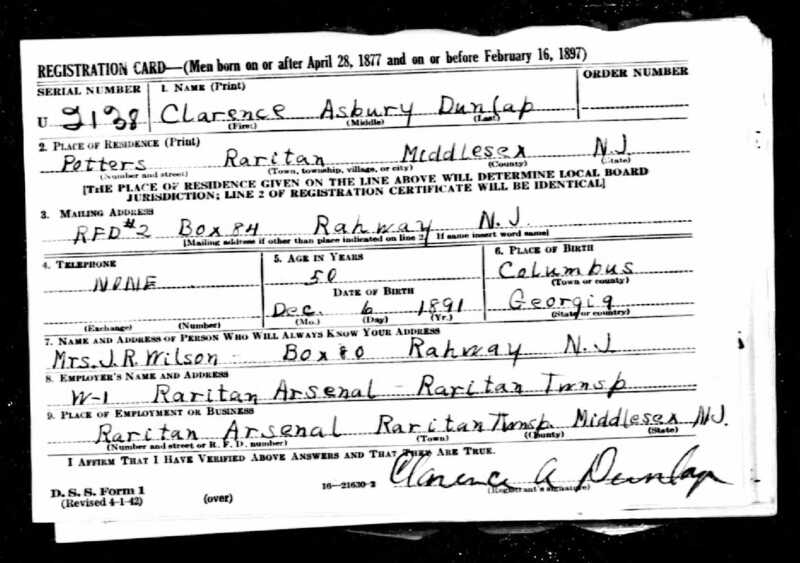 REGISTRATION CARD—(Men born on or after April 28, 1877 and on or before February 16, 1897)
SERIAL NUMBER 1. NAME (Print) ORDER NUMBER
U 2138 Clarence Asbury Dunlap
(First) (Middle) (Last)
2. PLACE OF RESIDENCE (Print)
Potters Raritan Middlesex N.J.
(Number and street) (Town, township, village, or city) (County) (State)
[THE PLACE OF RESIDENCE GIVEN ON THE LINE ABOVE WILL DETERMINE LOCAL BOARD
JURISDICTION; LINE 2 OF REGISTRATION CERTIFICATE WILL BE IDENTICAL]
3. MAILING ADDRESS
RFD #2 Box 84 Rahway N.J.
[Mailing address if other than place indicated on line 2. If same insert word same]
4. TELEPHONE 5. AGE IN YEARS 6. PLACE OF BIRTH
NONE 50 Columbus
(Town or county)
DATE OF BIRTH
Dec. 6 1891 Georgia
(Exchange) (Number) (Mo.) (Day) (Yr.) (State or country)
7. NAME AND ADDRESS OF PERSON WHO WILL ALWAYS KNOW YOUR ADDRESS
Mrs. J. R. Wilson - Box 80 Rahway N.J
8. EMPLOYER'S NAME AND ADDRESS
W-1 Raritan Arsenal - Raritan Twnsp
9. PLACE OF EMPLOYMENT OR BUSINESS
Raritan Arsenal Raritan Twnsp. Middlesex N.J.
(Number and street or R. F. D. number) (Town) (County) (State)
I AFFIRM THAT I HAVE VERIFIED ABOVE ANSWERS AND THAT THEY ARE TRUE.
Clarence A Dunlap
D. S. S. Form 1 (over) 16—21630-2 (Registrant's signature)
(Revised 4-1-42)